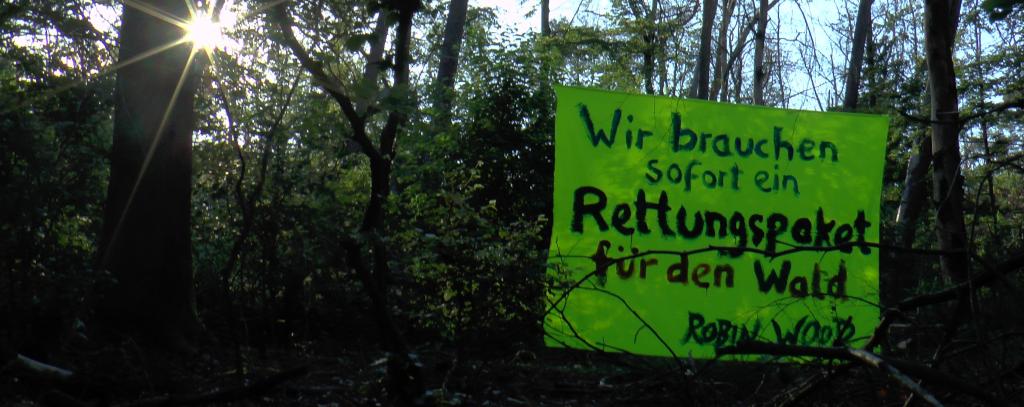 Wir brauchen
sofort ein
Rettungspaket
für den Wald
ROBIN WOOD